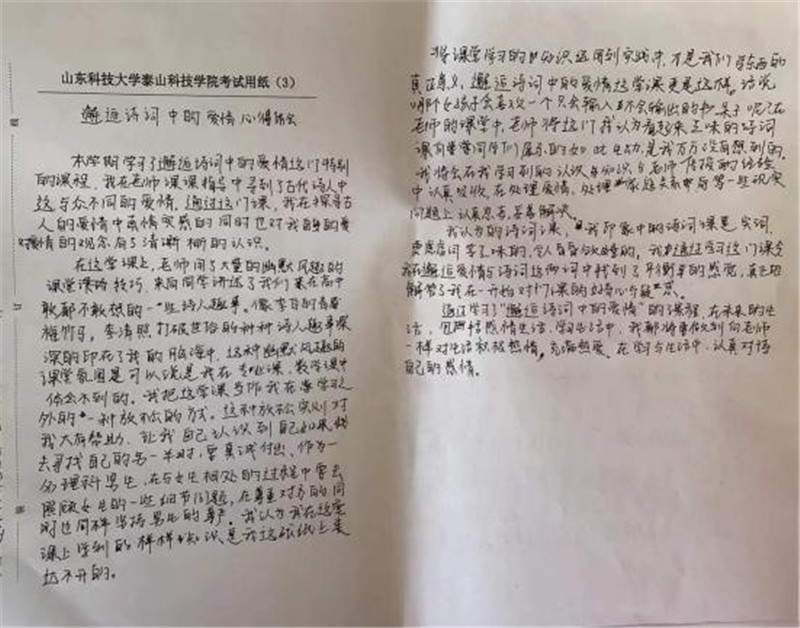 山东科技大学泰山科技学院考试用纸（3）
邂逅诗词中的爱情心得体会
本学期学习了邂逅诗词中的爱情这门特别
的课程，我在老师课课指导中寻到了古代诗人中
这与众不同的爱情。通过这门课，我在探寻古
人的爱情中真情实感的同时也对我自身的爱
对爱情的观念有了清晰的认识。
在这堂课上，老师用了大量的幽默风趣的
课堂演讲技巧，来向同学讲述了我们某在高中
歌都不敢想的一些诗人趣事。像李白的青梅
梅竹马，李清照打破世俗的种种诗人趣事深
深的印在了我的脑海中，这种幽默风趣的
课堂氛围是可以说是我在专业课，数学课中
体会不到的。我把这堂课当作我在学习之
外的一种放松的方式。这种放松实则对
我大有帮助，让我自己认识到自己如果
去寻找自己的另一半时，要真诚付出，作为一
名理科男生，在与女生相处的过程中要去
照顾女生的一些细节问题，在尊重对方的同
时也同样坚持男生的尊严。我认为我在这堂
课上学到的样样知识是我这张纸上表
达不开的。
将课堂学习的知识运用到实践中，才是我们学东西的
真正意义，邂逅诗词中的爱情这堂课更是这样。话说
哪个女孩子会喜欢一个只会输入不会输出的书呆子呢？在
老师的课堂中，老师将这门我认为看起来乏味的诗词
课向同学们展示的如此生动，是我万万没有想到的。
我将会在我学习到的认识与知识与老师传授的经验
中认真吸收，在处理爱情，处理家庭关系中另一些现实
问题上认真思考，妥善解决。
我认为的诗词课，我印象中的诗词课是实词，
虚词枯燥乏味的，令人昏昏欲睡的。我通过学习这门课令
我在邂逅爱情与诗词这两词中找到了平衡的感觉，真正地
解答了我在一开始对门课的好奇心与疑惑。
通过学习“邂逅诗词中的爱情”的课程，在未来的生
活，包括情感生活，学习生活中，我都将争做到向老师
一样对生活积极热情，充满热爱。在学习与生活中，认真对待
自己的感情。